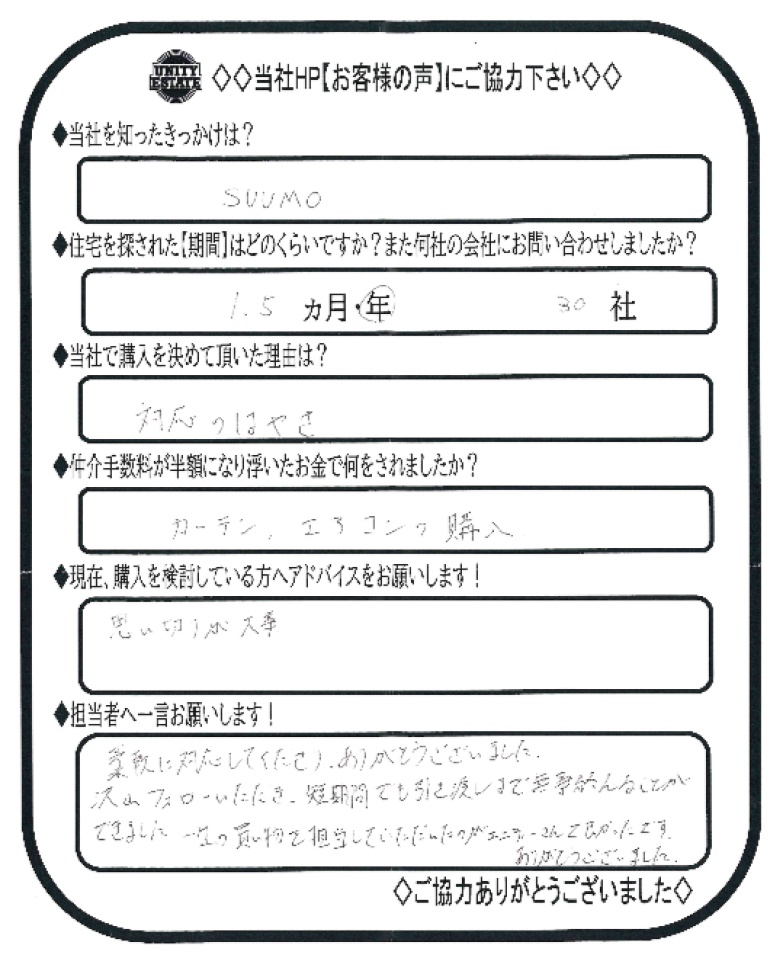 UNITY ESTATE ◇◇当社HP【お客様の声】にご協力下さい◇◇
◆当社を知ったきっかけは？
SUUMO
◆住宅を探された【期間】はどのくらいですか？また何社の会社にお問い合わせしましたか？
1.5 ヵ月・年 30 社
◆当社で購入を決めて頂いた理由は？
対応のはやさ
◆仲介手数料が半額になり浮いたお金で何をされましたか？
カーテン、エアコンの購入
◆現在、購入を検討している方へアドバイスをお願いします！
思い切りが大事
◆担当者へ一言お願いします！
柔軟に対応してくださり、ありがとうございました。
沢山フォローいただき、短期間でも引き渡しまで無事終えることが
できました 一生の買い物を担当していただいたのが さんで良かったです。
ありがとうございました。
◇ご協力ありがとうございました◇